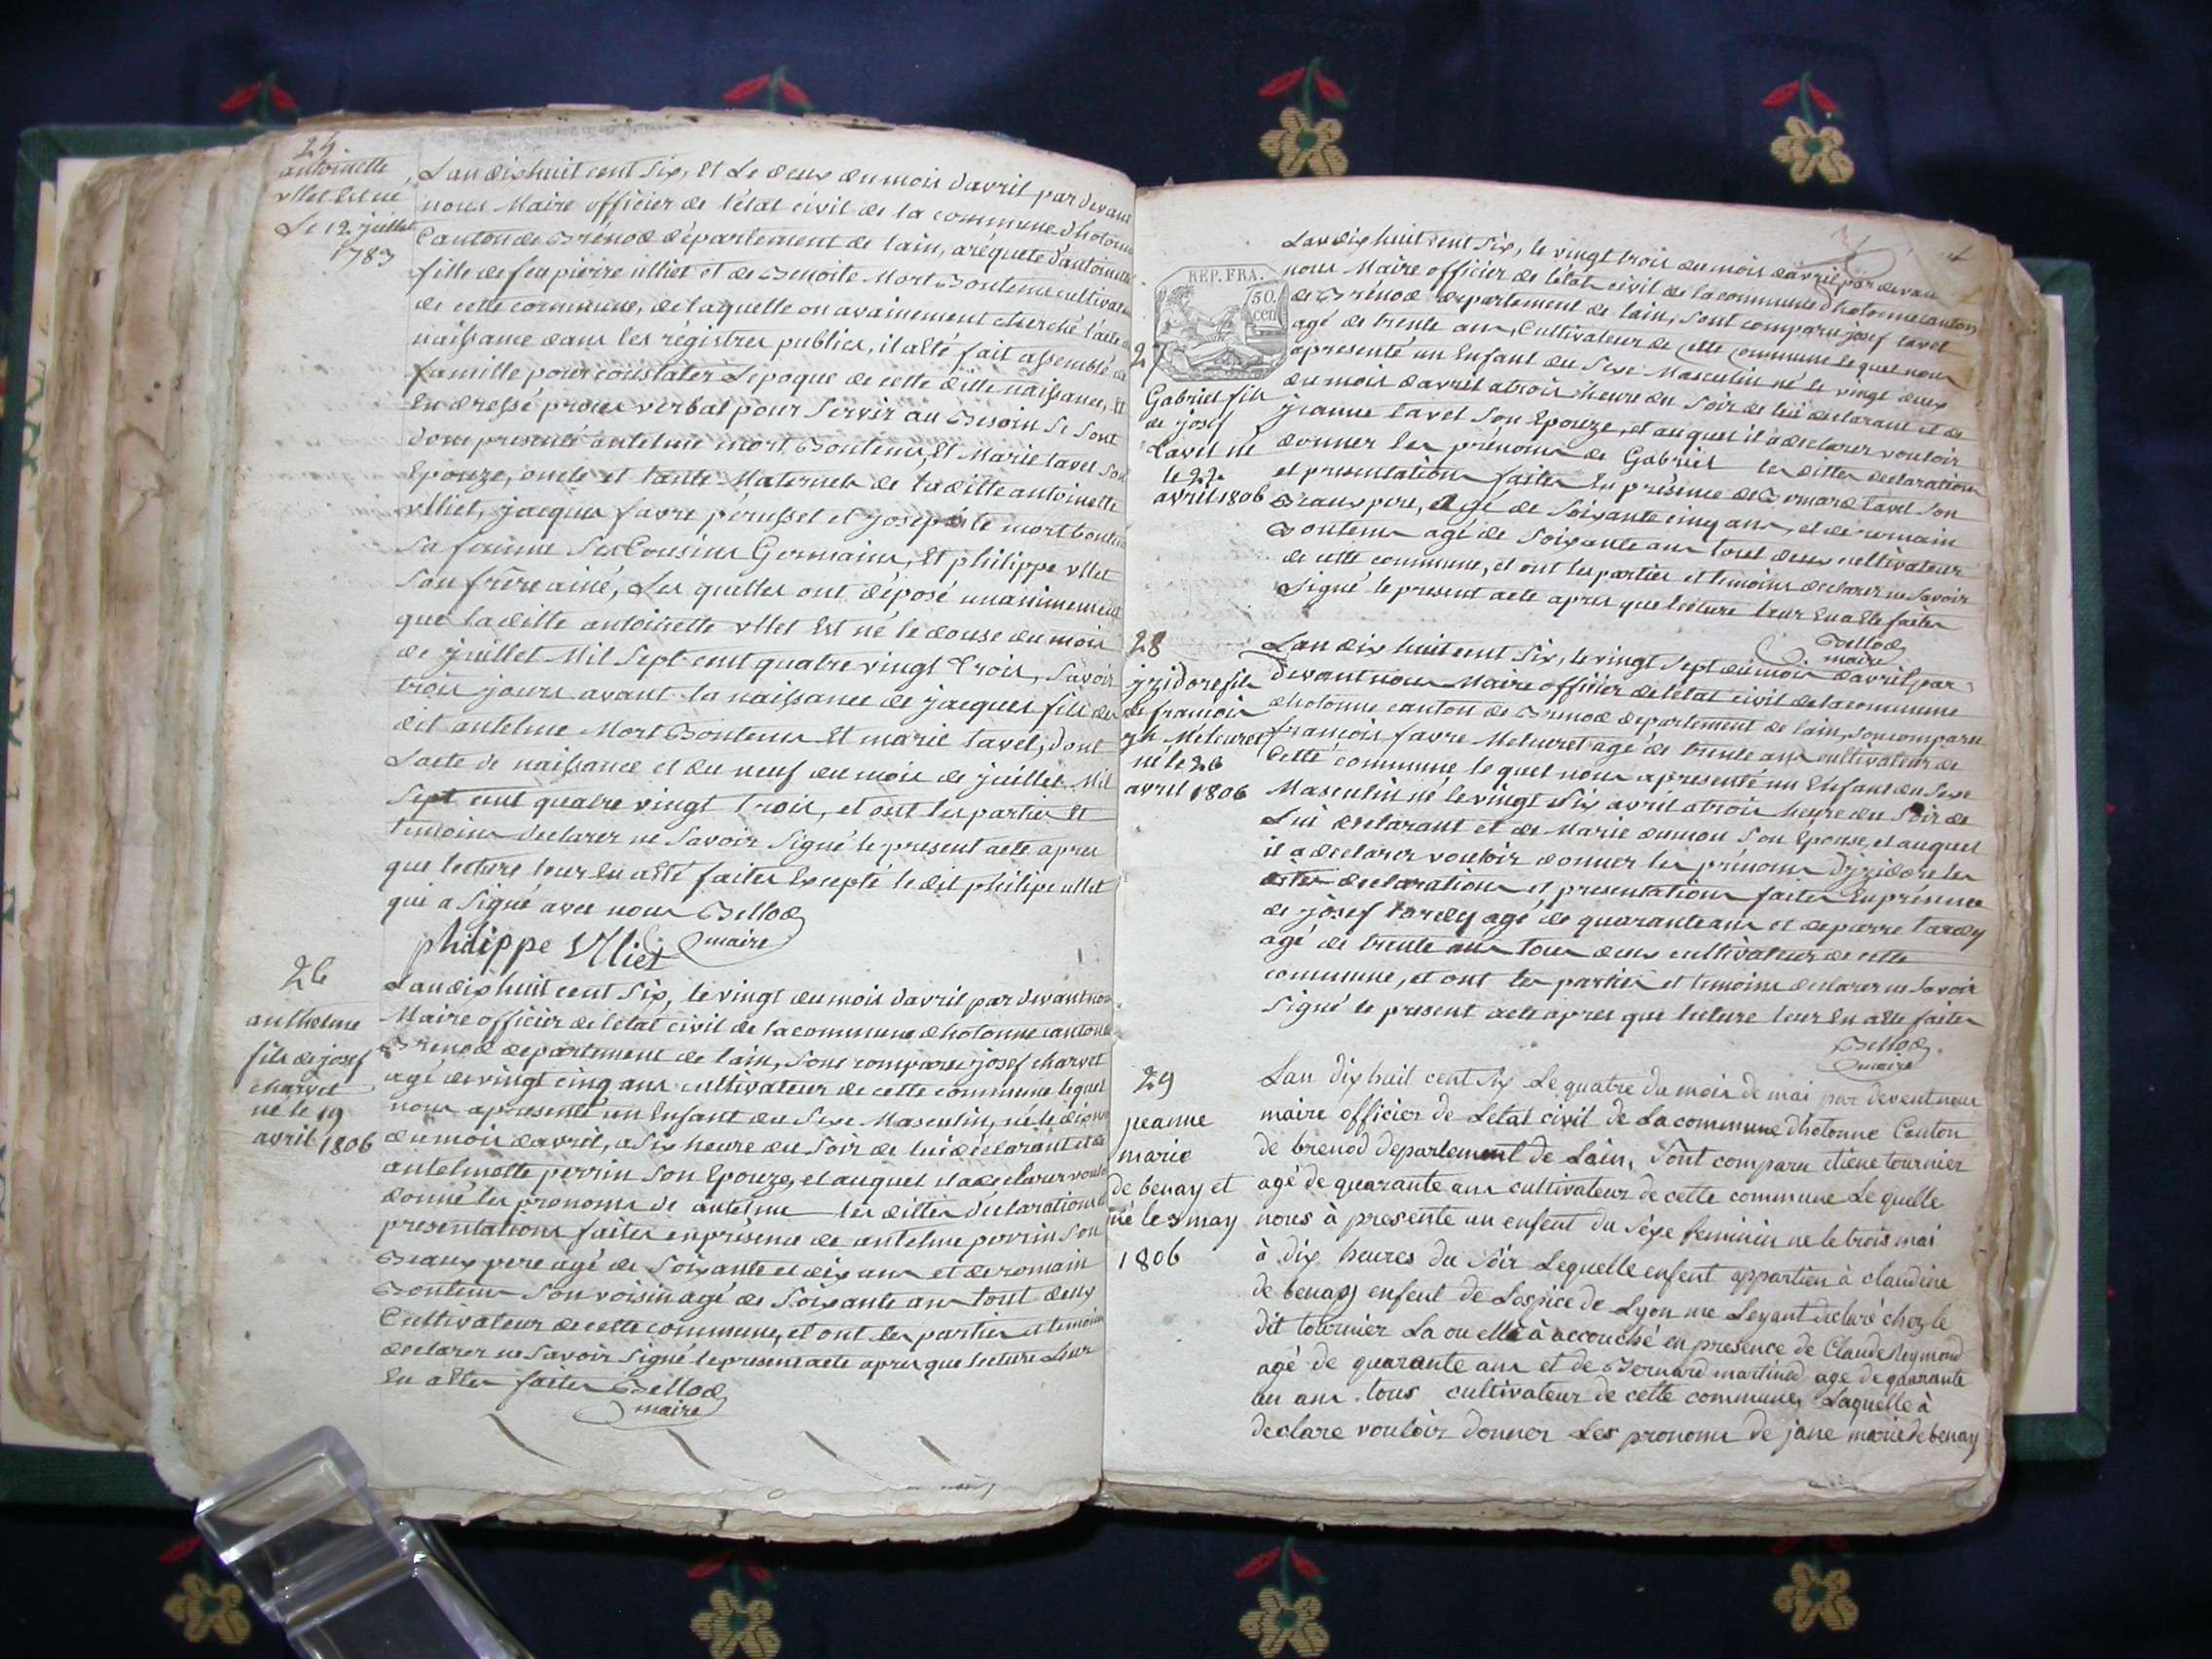 antoinette
ulliet est né
Le 12 juillet
1783
L'an dixhuit cent Six, et Le deux du mois d'avril par devant
nous Maire officier de l'état civil de la commune d'hotonne
Canton de Brénod département de lain, a réquete d'antoinette
fille de feu pierre ulliet et de Benoite Mort Bontems cultivateur
de cette commune, de laquelle on a vainement cherché l'acte de
naissance dans les régistres publics, il a été fait assemblé de
famille pour constater L'epoque de cette ditte naissance, Et
En dressé proces verbal pour Servir au Besoin Se Sont
donc presenté antelme mort Bontems, Et Marie tavel Son
Epouze, oncle et tante Maternels de la ditte antoinette
ulliet, jacques favre pérussel et josephte mort bontems
Sa femme Ses Cousins Germains, Et philippe ullet
Son frère ainé, Les quelles ont déposé unanimement
que la ditte antoinette ullet Est né le douse du mois
de juillet Mil Sept cent quatre vingt trois, Savoir
trois jours avant la naissance de jacques fils du
dit antelme Mort Bontems Et marie tavel, dont
Lacte de naissance et du neuf du mois de juillet Mil
Sept cent quatre vingt trois, et ont les parties Et
temoins declarer ne Savoir Signé le present acte apres
que lecture leur En a été faites Excepté le dit philipe ullet
qui a Signé avec nous Bellod
maire
philippe Ulliet
26
anthelme
fils de josef
charvet
né le 19
avril 1806
L'an dix huit cent Six, le vingt du mois d'avril par devant nous
Maire officier de l'état civil de la commune d'hotonne canton de
Brenod departement de lain, Sont comparu josef charvet
agé de vingt cinq ans cultivateur de cette commune lequel
nous a presenté un Enfant du Sexe Masculin, né le dix neuf
du mois d'avril, a Six heure du Soir de lui déclarant et de
antelmette perrin Son Epouze, et auquel il a declarer vouloir
donné les pronoms de antelme les dittes déclarations et
presentations faites en présence de antelme perrin Son
Beaux pere agé de Soixante et dix ans et de romain
Bontems Son voisin agé de Soixante ans tout deux
Cultivateur de cette commune, et ont les parties et temoins
declarer ne Savoir Signé le present acte apres que lecture Leur
En a Etes faites Bellod
maire
REP. FRA.
50.
cen
27
Gabriel fils
de josef
Tavel né
le 22
avril 1806
L'an dix huit cent Six, le vingt trois du mois d'avril par devant
nous Maire officier de l'état civil de la commune d'hotonne canton
de Brénod departement de lain, Sont comparu josef tavel
agé de trente ans, Cultivateur de cette commune le quel nous
a presenté un Enfant du Sexe Masculin né le vingt deux
du mois d'avril a trois heure du Soir de lui declarant et de
jeanne tavel Son Epouze, et auquel il a declarer vouloir
donner les prénoms de Gabriel les dittes declarations
et presentations faites En présence de Bernard tavel Son
Beaux pere, agé de Soixante cinq ans, et de romain
Bontems agé de Soixante ans tout deux cultivateur
de cette commune, et ont les parties et temoins declarer ne Savoir
Signé le present acte apres que lecture leur En a Ete faites
Bellod
maire
28
jzidore fils
de francois
Meturet
né le 26
avril 1806
L'an dix huit cent Six, le vingt Sept du mois d'avril par
devant nous Maire officier de l'état civil de la commune
d'hotonne canton de Brenod departement de lain, Son comparu
francois favre Meturet agé de trente ans cultivateur de
Cette commune le quel nous a presenté un Enfant du Sexe
Masculin né le vingt Six avril a trois heure du Soir de
Lui declarant et de Marie dumon Son Epouse, et auquel
il a declarer vouloir donner les prénoms d'jzidore les
dites declarations et presentations faites En présence
de josef tardy agé de quarante ans et de pierre tardy
agé de trente ans tous deux cultivateur de cette
commune, et ont les parties et temoins declarer ne Savoir
Signé le present acte apres que lecture leur En a Ete faites
Bellod
maire
29
jeanne
marie
de benay et
né le 3 may
1806
Lan dix huit cent Six Le quatre du mois de mai par devent nous
maire officier de Letat civil de La commune d'hotonne Conton
de brenod departement de Lain, Sont comparu etiene tournier
agé de quarante ans cultivateur de cette commune Le quelle
nous à presente un enfent du Séxe feminin ne le trois mai
à dix heures du Soir Lequelle enfent appartien à claudine
de benay enfent de Lospice de Lyon me Leyant declaré chez le
dit tournier La ou elle à accouché en presence de Claude Reymond
agé de quarante ans et de Bernard martinod age de quarante
un ans tous cultivateur de cette commune, Laquelle à
declare vouloir donner Les pronoms de jane marie de benay